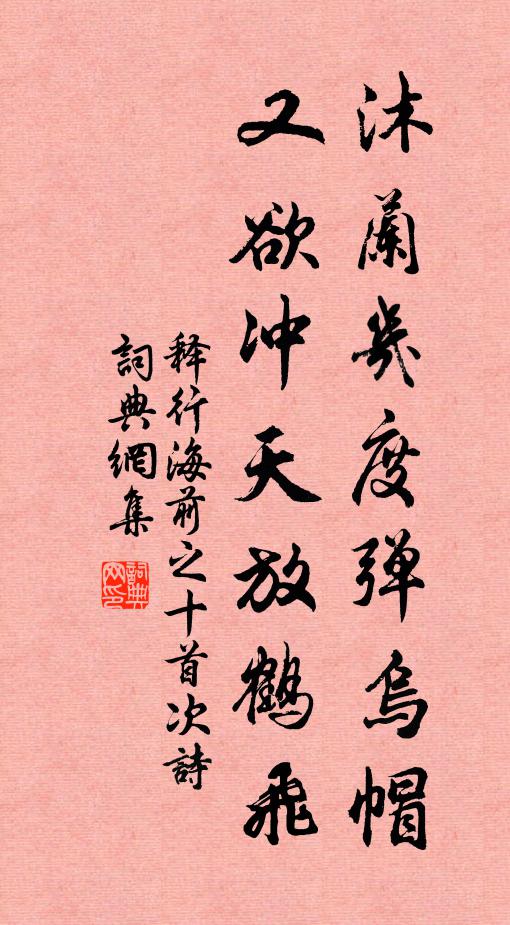 沐蘭幾度弹烏帽
又欲冲天放鶴飛
释行海前之十首次詩
詞典網集
詞典网印